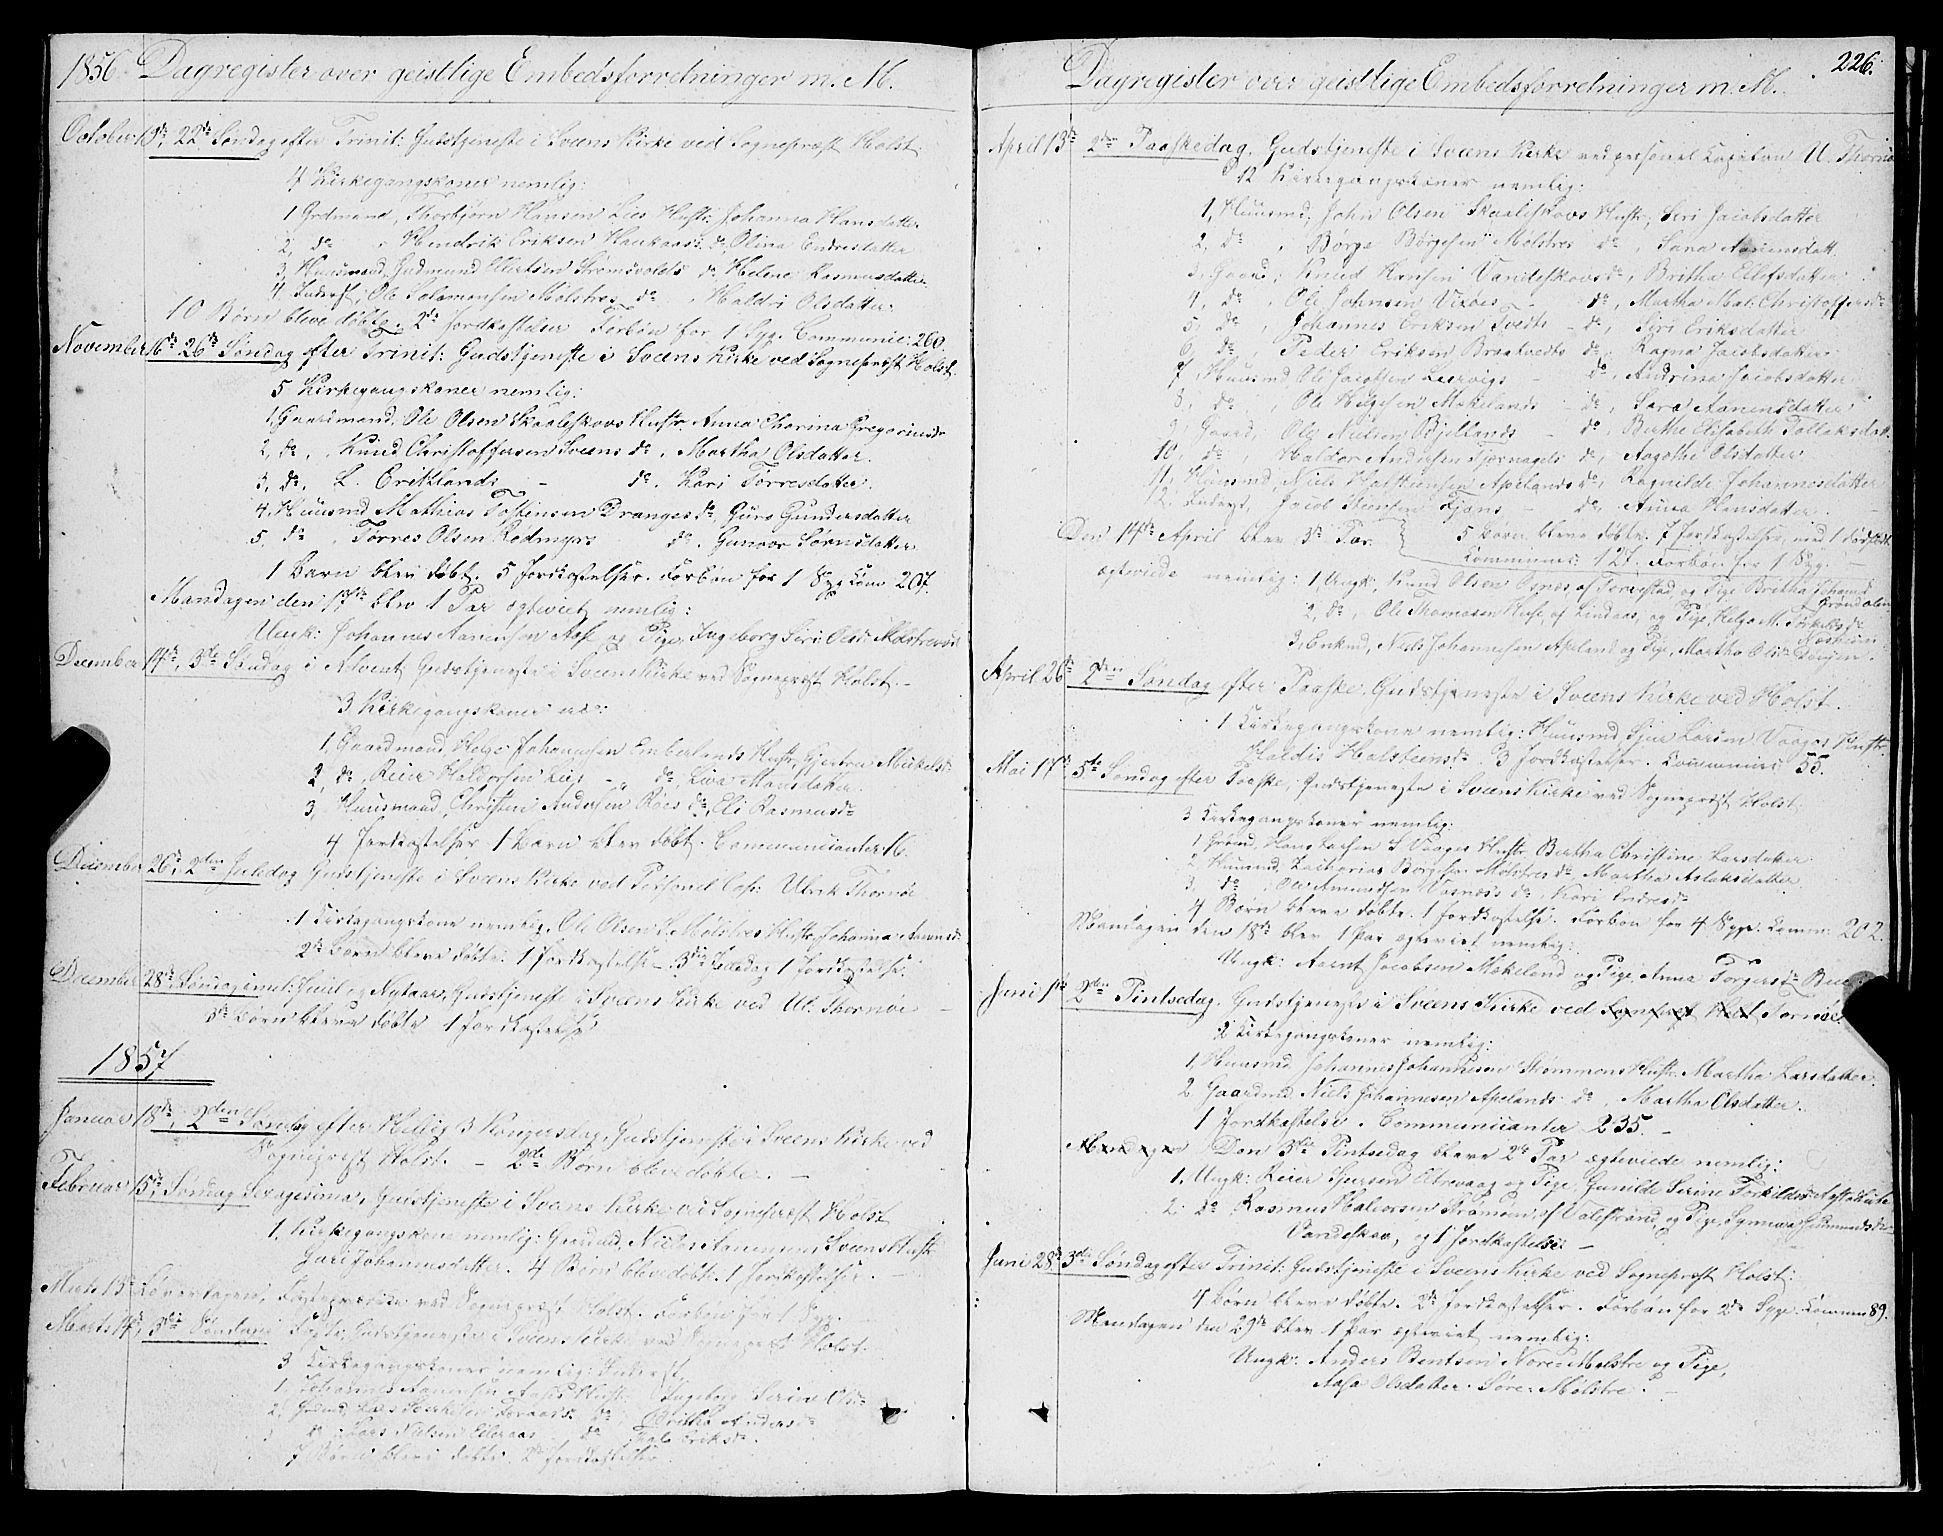 1856. Dagregister over geistlige Embedsforretninger m. M.
October 19de, 22de Søndag efter Trinit: Gudstjeneste i Sveens Kirke ved Sognepræst Holst.
4 Kirkegangskoner nemlig:
1 Grdmand, Thorbjørn Hansen Lies Hustr: Johanna Hansdatter
2, do , Hendrik Eriksen Haukaas: do, Olina Endresdatter
3, Huusmand, Gudmund Ellertsen Strømsvolds do Helene Rasmusdatter
4, Inderst, Ole Salomonsen Mølstres do , Haldri Olsdatter.
10 Børn bleve døbte. 2de Jordkastelser Forbøn for 1 Syg. Communic: 260.
November 16de 26de Søndag efter Trinit: Gudstjeneste i Sveens Kirke ved Sognepræst Holst.
5 Kirkegangskoner nemlig:
1, Gaardmand, Ole Olsen Skaaleskovs Hustr Anna Chorina Gregoriusdr
2, do, , Knud Christoffersen Sveens do , Martha Olsdatter.
3, do, L. Eriklands - do, Kari Torresdatter.
4, Huusmd Mathias Tostensen Dranges do Guro Gundersdatter
5, do , Torres Olsen Rødmyrs do , Gunvor Sørensdatter
1 Barn blev døbt. 5 Jordkastelser. Forbøn for 1 Syg. Com 207.
Mandagen den 17de blev 1 Par ægteviet nemlig:
Ungk: Johannes Aanensen Aase og Pige, Ingeborg Seri: Olsdr Mølstrevold
December 14de, 3de Søndag i Advent Gudstjeneste i Sveens Kirke ved Sognepræst Holst. -
3 Kirkegangskoner
1, Gaardmand, Helge Johannesen Emberlands Hustr, Gjertru Mikelsdr
2, do, Reier Haldorsen Lies - do, Liva Mansdatter.
3, Huusmand, Christen Andersen Roes do, Eli Rasmusdr
4 Jordkastelser 1 Barn blev døbt. Communicanter 16.
December 26de, 2den Juledag Gudstjeneste i Sveens Kirke ved Personel Cap: Ulrik Thornøe
1 Kirkegangskone nemlig, Ole Olsen S. Mølstres Hustr, Johanna Aanensdr
2de Børn bleve døbte. 1 Jordkastelse. 3die Juledag 1 Jordkastelse.
December 28de, Søndag imel: Juul og Nytaar, Gudstjeneste i Sveens Kirke ved Ul. Thornøe -
Børn bleve døbte 1 Jordkastelse
1857
Januar 18de, 2den Søndag efter Hellig 3 Kongersdag, Gudstjeneste i Sveens Kirke ved
Sognepræst Holst. - 2de Børn bleve døbte. -
Februar 15de, Søndag Sexagesima, Gudstjeneste i Sveens Kirke ved Sognepræst Holst
1, Kirkegangskone nemlig: Gaardmd, Niels Aanensen Sveens Hustr
Guri Johannesdatter. 4 Børn bleve døbte. 1 Jordkastelse. -
Fasteprædiken ved Sognepræst Holst. Forbøn for 1 Syg.
Marts 3die Søndag i Faste, Gudstjeneste i Sveens Kirke ved Sognepræst Holst.
3 Kirkegangskoner nemlig: Inderst,
1, Johannes Aanensen Aases Hustr: Ingeborg Serine Olsdr
2, Grdmd, do, Britha Andersdr
3 do , Lars Nielsen do Eriksdr.
7 Børn bleve døbte. 2de Jordkastelser
226.
Dagregister over geistlige Embedsforretninger m. M.
April 13de 2den Paaskedag. Gudstjeneste i Sveens Kirke ved personel Capelan U. Thornøe
12 Kirkegangskoner nemlig:
1, Huusmd, John Olsen Skaaleskovs Hustr, Seri Jacobsdatter
2, do , Børge Børgesen Mølstres do , Sara Aanensdatt.
3, Gaard, Knud Hansen Vandeskovs do, Britha Ellefsdatter
4, do , Ole Johnsen Vixøes - do, Martha Mal: Christoffersdr
5, do , Johannes Eriksen Tvedts - do, Siri Eriksdatter
6, do , Peder Eriksen Braatveds do, Ragna Jacobsdatter
7, Huusmd, Ole Jacobsen Leervigs - do, Andrina Jacobsdatter
8, do , Ole Helgesen Mækelands do, Sara Aanensdatter
9, Gaard, Ole Nielsen Bjellands - do, Birthe Elisabeth Tollaksdatt.
10, do , Haldor Andersen Tjernagels do, Aagothe Olsdatter
11, Huusmd, Niels Halstensen Apelands do, Ragnilde Johannesdatter
12, Inderst, Jacob Steensen Fjøns do, Anna Hansdatter. -
Den 14de April blev 3de Par 5 Børn bleve døbte. 7 Jordkastelser, med 1 dødfødt
Communic: 127. Forbøn for 1 Syg. -
ægteviede nemlig: 1, Ungk, Knud Olsen Synes, af Torvestad, og Pige Britha Johannd
Grøndalen
2, do, Ole Thomasen Huse, af Lindaas, og Pige, Helga M. Torkilsdr
3, Enkmd, Niels Johannesen Apeland og Pige, Martha Olsdr
April 26de 2den Søndag efter Paaske, Gudstjeneste i Sveens Kirke ved Holst.
1 Kirkegangskone nemlig: Huusmd, Sjur Larsen Vaages Hustr
Haldis Halsteensdr. 3 Jordkastelser. Communic: 55.
Mai 17de 5te Søndag efter Paaske, Gudstjeneste i Sveens Kirke ved Sognepræst Holst.
3 Kirkegangskoner nemlig:
1 Grdmd, Hans Larsen S Vaages Hustr Bertha Christine Larsdatter
2 Huusmd, Zacharias Børgesen Mølstres do Martha Aslaksdatter
3, do Ole Amundsen Vaernæs do, Kari Endresdr
4 Børn bleve døbte. 1 Jordkastelse. Forbøn for 4 Syge. Comm: 202.
Mandagen den 18de blev 1 Par ægteviet nemlig:
Ungk: Aarnt Jacobsen Mækeland og Pige, Anna Torgersdr Bue
Juni 1ste 2den Pintsedag. Gudstjeneste i Sveens Kirke ved Sognepræst Holst Tornøe
2 Kirkegangskoner nemlig:
1, Huusmd Johannes Johannesen Strømmens Hustr. Martha Larsdatter.
2 Gaardmd Niels Johannesen Apelands do, Martha Olsdatter.
1 Jordkastelse. Communicanter 235. -
Mandagen Den 3die Pintsedag bleve 2de Par ægteviede nemlig:
1, Ungk: Reier Sjursen Eltrevaag og Pige, Gunilde Serine Torkildsdr
2. do Rasmus Halvorsen Strømøen, af Valestrand, og Pige, Synneva Gudmundsdr
Vandeskov, og 1 Jordkastelse. -
Juni 28de 3die Søndag efter Trinit: Gudstjeneste i Sveens Kirke ved Sognepræst Holst.
4 Børn bleve døbte. 2de Jordkastelser. Forbøn for 2de Syge. Commun 89.
Mandagen den 29de blev 1 Par ægteviet nemlig:
Ungk: Anders Bentsen Nore-Mølstre og Pige,
Aasa Olsdatter Søre-Mølstre. -